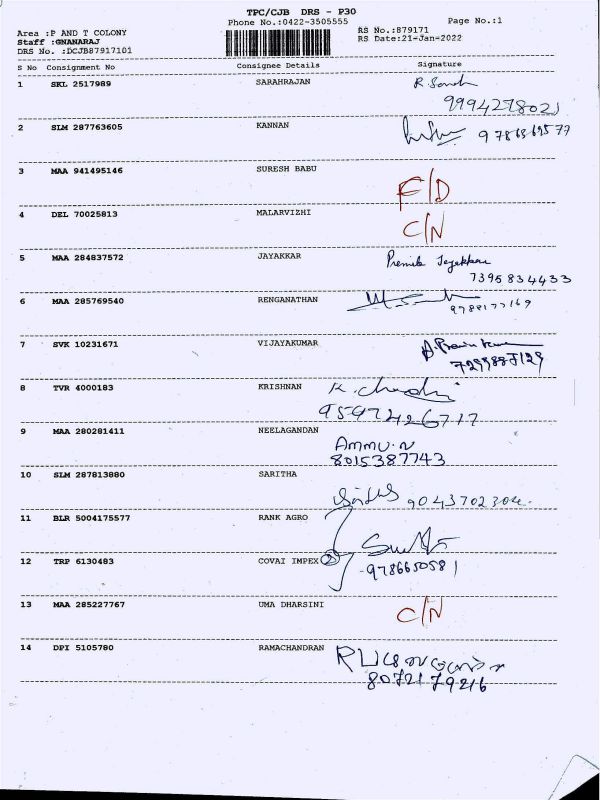 TPC/CJB DRS - P30
Phone No.:0422-3505555 Page No.:1
Area :P AND T COLONY RS No.:879171
Staff :GNANARAJ RS Date:21-Jan-2022
DRS No. :DCJB87917101
S No Consignment No Consignee Details Signature
1 SKL 2517989 SARAHRAJAN
9994278021
2 SLM 287763605 KANNAN
3 MAA 941495146 SURESH BABU F/D
4 DEL 70025813 MALARVIZHI C/N
5 MAA 284837572 JAYAKKAR
7395834433
6 MAA 285769540 RENGANATHAN
9788177169
7 SVK 10231671 VIJAYAKUMAR
8 TVR 4000183 KRISHNAN
9597426717
9 MAA 280281411 NEELAGANDAN AMMU.N
8015387743
10 SLM 287813880 SARITHA
11 BLR 5004175577 RANK AGRO
12 TRP 6130483 COVAI IMPEX 2
9786650581
13 MAA 285227767 UMA DHARSINI C/N
14 DPI 5105780 RAMACHANDRAN
8072179216